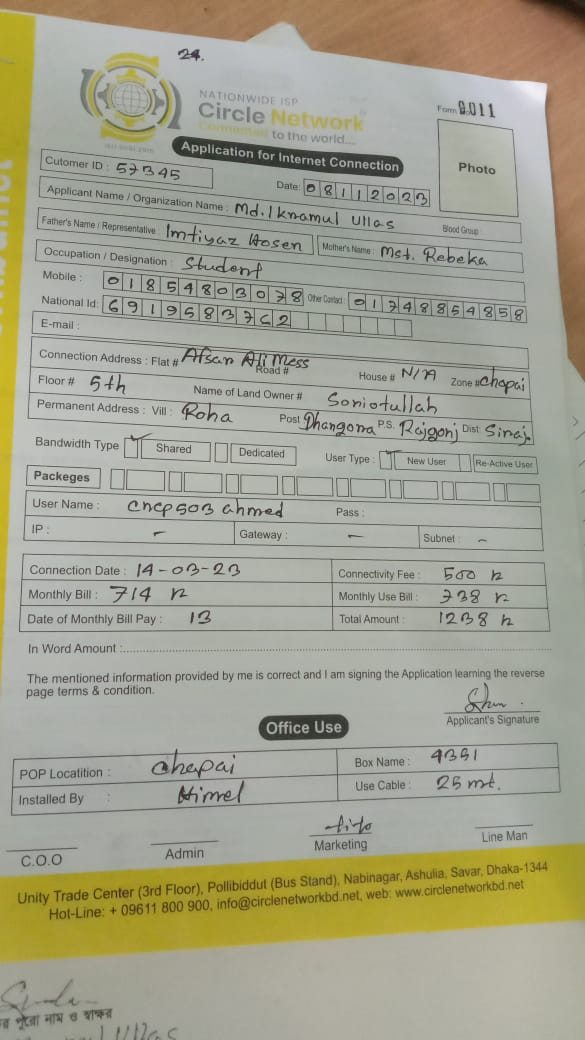 24.
NATIONWIDE ISP
Circle Network
Connected to the world....
ISO 9001:2015
Form 9.011
Application for Internet Connection
Photo
Cutomer ID : 57345
Date: 08112023
Applicant Name / Organization Name : Md. Iknamul Ullas Blood Group :
Father's Name / Representative : Imtiyaz Hosen Mother's Name : Mst. Rebeka
Occupation / Designation : Student
Mobile : 01854803078 Other Contact : 01748854858
National Id: 6919583762
E-mail :
Connection Address : Flat # Afsar Ali Mess Road # House # N/A Zone # Chapai
Floor # 5th Name of Land Owner # Soniotullah
Permanent Address : Vill : Roha Post Dhangora P.S. Rajgonj Dist: Siraj.
Bandwidth Type Shared Dedicated User Type : New User Re-Active User
Packeges
User Name : cncp503 ahmed Pass :
IP : - Gateway : - Subnet : -
Connection Date : 14-03-23 Connectivity Fee : 500
Monthly Bill : 714 Monthly Use Bill : 738
Date of Monthly Bill Pay : 13 Total Amount : 1238
In Word Amount :
The mentioned information provided by me is correct and I am signing the Application learning the reverse
page terms & condition.
Applicant's Signature
Office Use
POP Locatition : chapai Box Name : 4351
Installed By : Himel Use Cable : 25 mt.
C.O.O Admin Marketing Line Man
Unity Trade Center (3rd Floor), Pollibiddut (Bus Stand), Nabinagar, Ashulia, Savar, Dhaka-1344
Hot-Line: + 09611 800 900, info@circlenetworkbd.net, web: www.circlenetworkbd.net
পুরো নাম ও স্বাক্ষর
Ullas